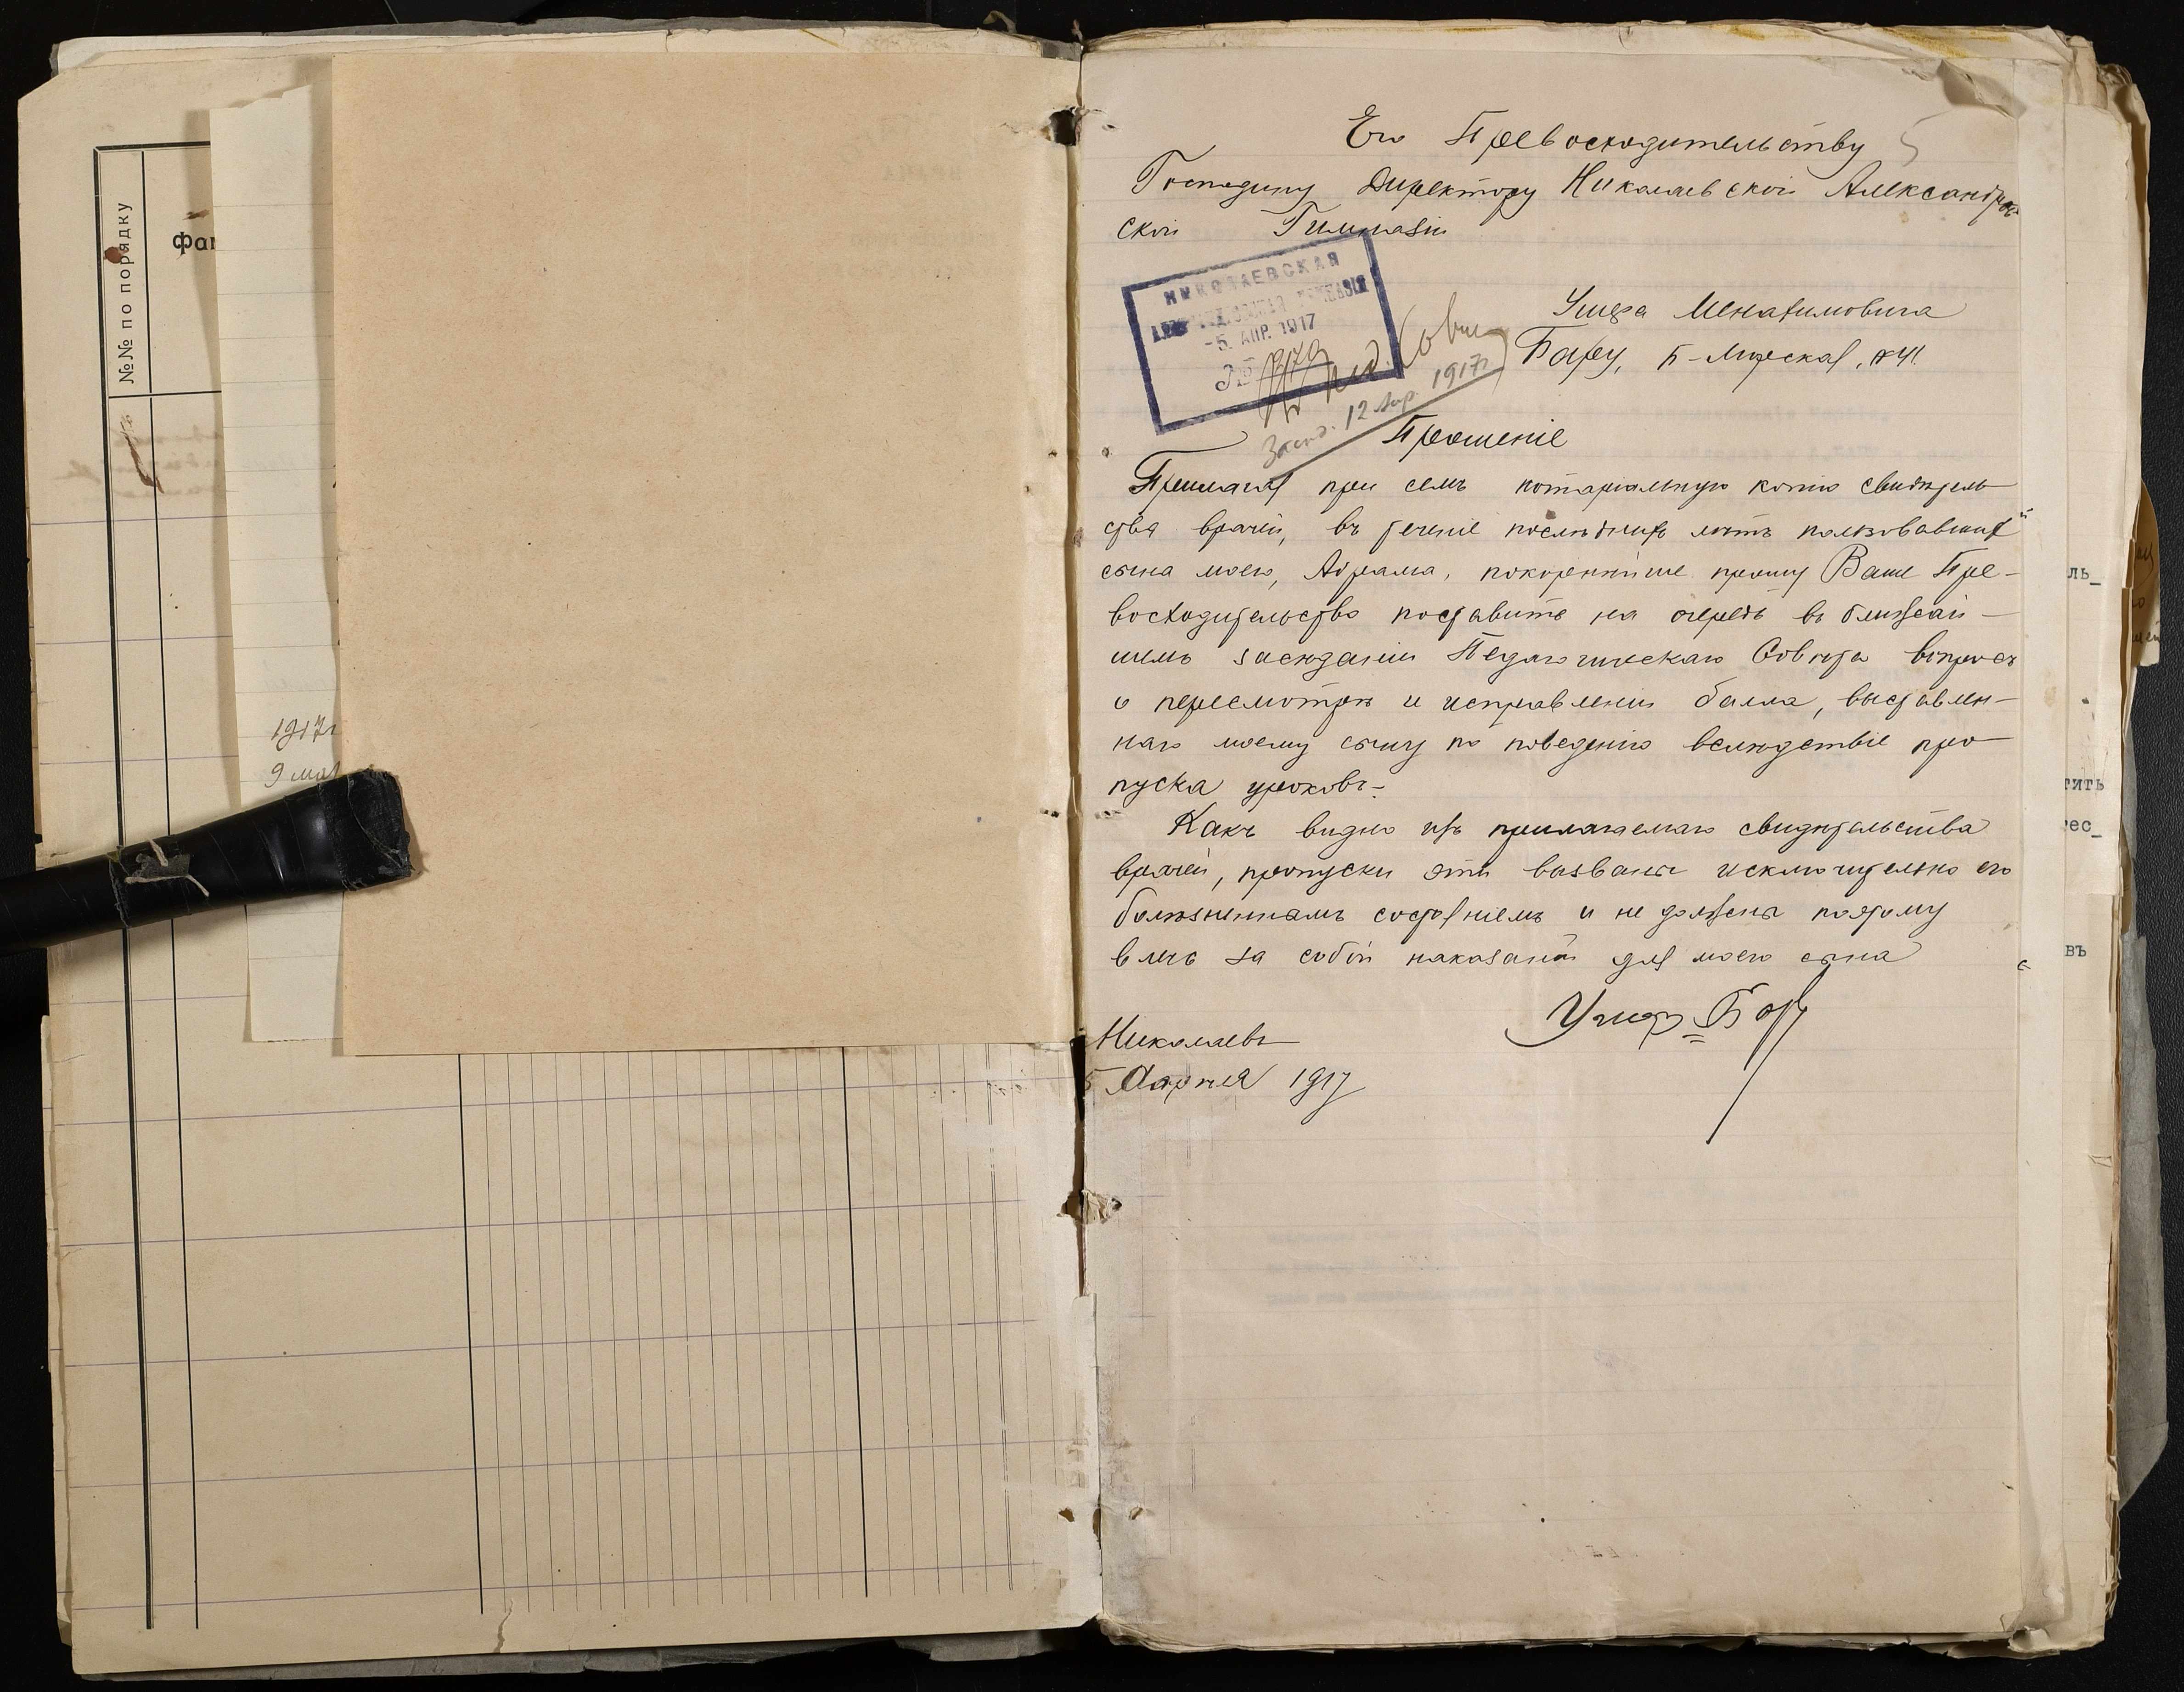 №№ по порядку
Фа
1917г
9 мая
Его Превосходительству
Господину Директору Николаевской Александров
ской Гимназіи
НИКОЛАЕВСКАЯ
АЛЕКСАНДРОВСКАЯ ГИМНАЗІЯ
-5. АПР. 1917
№
Пед. Совѣт
Засѣд. 12 Апр. 1917г.
Ушера Менахимовича
Бару, Б-Морская, №41.
Прошеніе
Прилагая при семъ нотаріальную копію свидѣтель
ства врачей, въ теченіе послѣднихъ лѣтъ пользовавшихъ
сына моего, Абрама, покорнѣйше прошу Ваше Пре-
восходительство поставить на очередь въ ближай-
шемъ засѣданіи Педагогическаго Совѣта вопросъ
о пересмотрѣ и исправленіи балла, выставлен-
наго моему сыну по поведенію вслѣдствіе про-
пуска уроковъ.-
Какъ видно изъ прилагаемаго свидѣтельства
врачей, пропуски эти вызваны исключительно его
болѣзненнымъ состояніемъ и не должны поэтому
влечь за собой наказаній для моего сына
Ушер Бару
Николаевъ
5 Апрѣля 1917
ль_
тить
ес_
въ